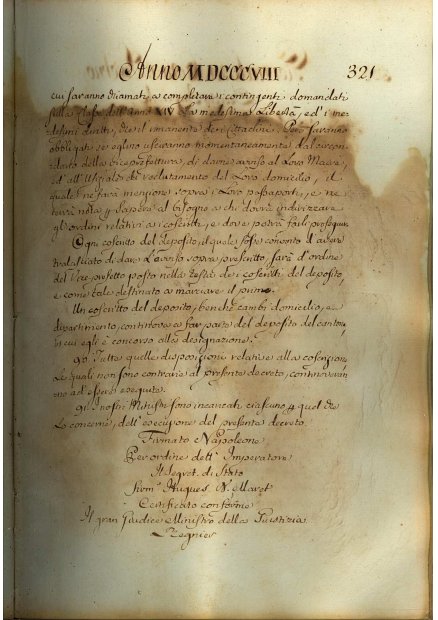 Anno MDCCCVIII 321
cui saranno chiamati a completare i contingenti domandati
sulla Classe dell'anno XIV la medesima Libertà, ed i me
desimi diritti, che il rimanente dei cittadini. Però saranno
obbligati se eglino usciranno momentaneamente dal circon
dario della viceprefettura, di darne avviso al Loro Maire,
ed all'Uffiziale di reclutamento del Loro domicilio, il
quale ne farà menzione sopra i Loro passaporti, e ne
terrà nota per sapere al bisogno a chi dovrà indirizzare
gli ordini relativi ai coscritti, e dove potrà farli proseguire
Ogni coscritto del deposito, il quale fosse convinto d'avere
tralasciato di dare l'avviso sopra prescritto, sarà d'ordine
del Vice prefetto posto nella testa dei coscritti del deposito,
e come tale destinato a marciare il primo.
Un coscritto del deposito, benchè cambi domicilio, e
dipartimento, continova a far parte del deposito del cantone,
in cui egli è concorso alla designazione.
90 Tutte quelle disposizioni relative alla coscrizione
le quali non sono contrarie al presente decreto, continoveran
no ad essere eseguite.
91 I nostri Ministri sono incaricati ciascuno p quel che
lo concerne, dell'esecuzione del presente decreto.
Firmato Napoleone
Per ordine dell'Imperatore
Il Segret. di Stato
Firm.º Hugues B. Maret
Certificato conforme
Il gran Giudice Ministro della Giustizia
Regnier